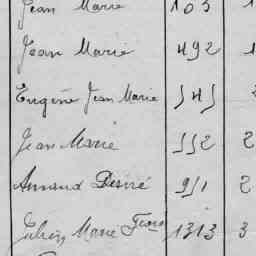 Jean Marie 103 1
Jean Marie 492 1
Eugène Jean Marie 545
Jean Marie 552 2
Armand Désiré 951 2
Marie 1313 3